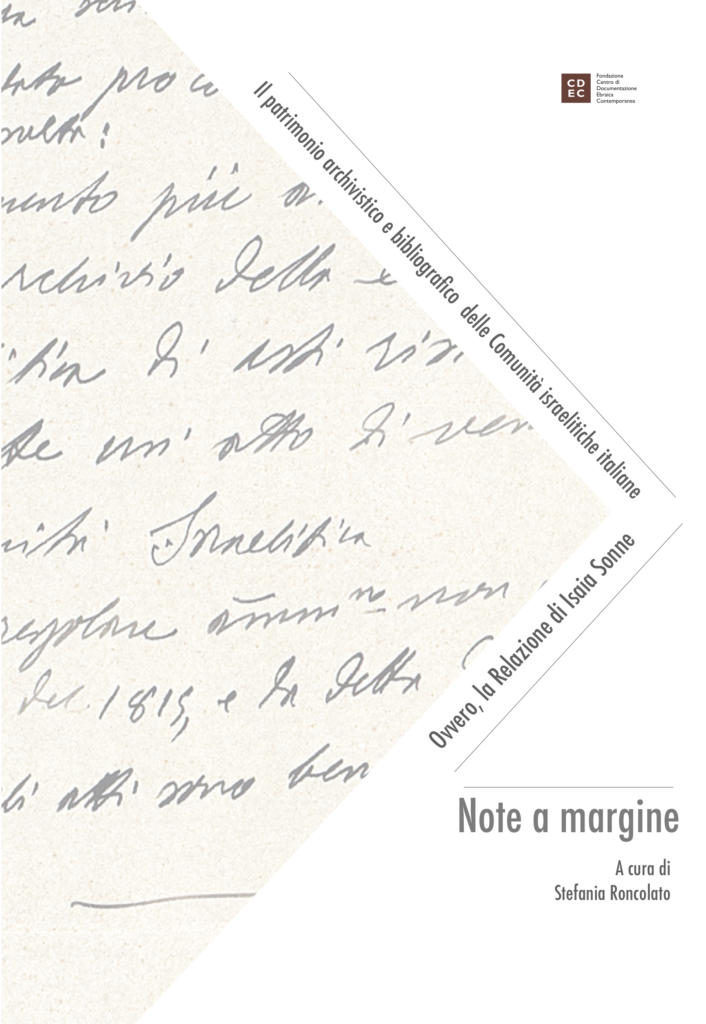 CD
EC
Fondazione
Centro di
Documentazione
Ebraica
Contemporanea
Il patrimonio archivistico e bibliografico delle Comunità israelitiche italiane
Ovvero, la Relazione di Isaia Sonne
Note a margine
A cura di
Stefania Roncolato
più
della
di atti
un' atto di
Israelitica
regolare non
del 1815, e la detta
atti sono ben